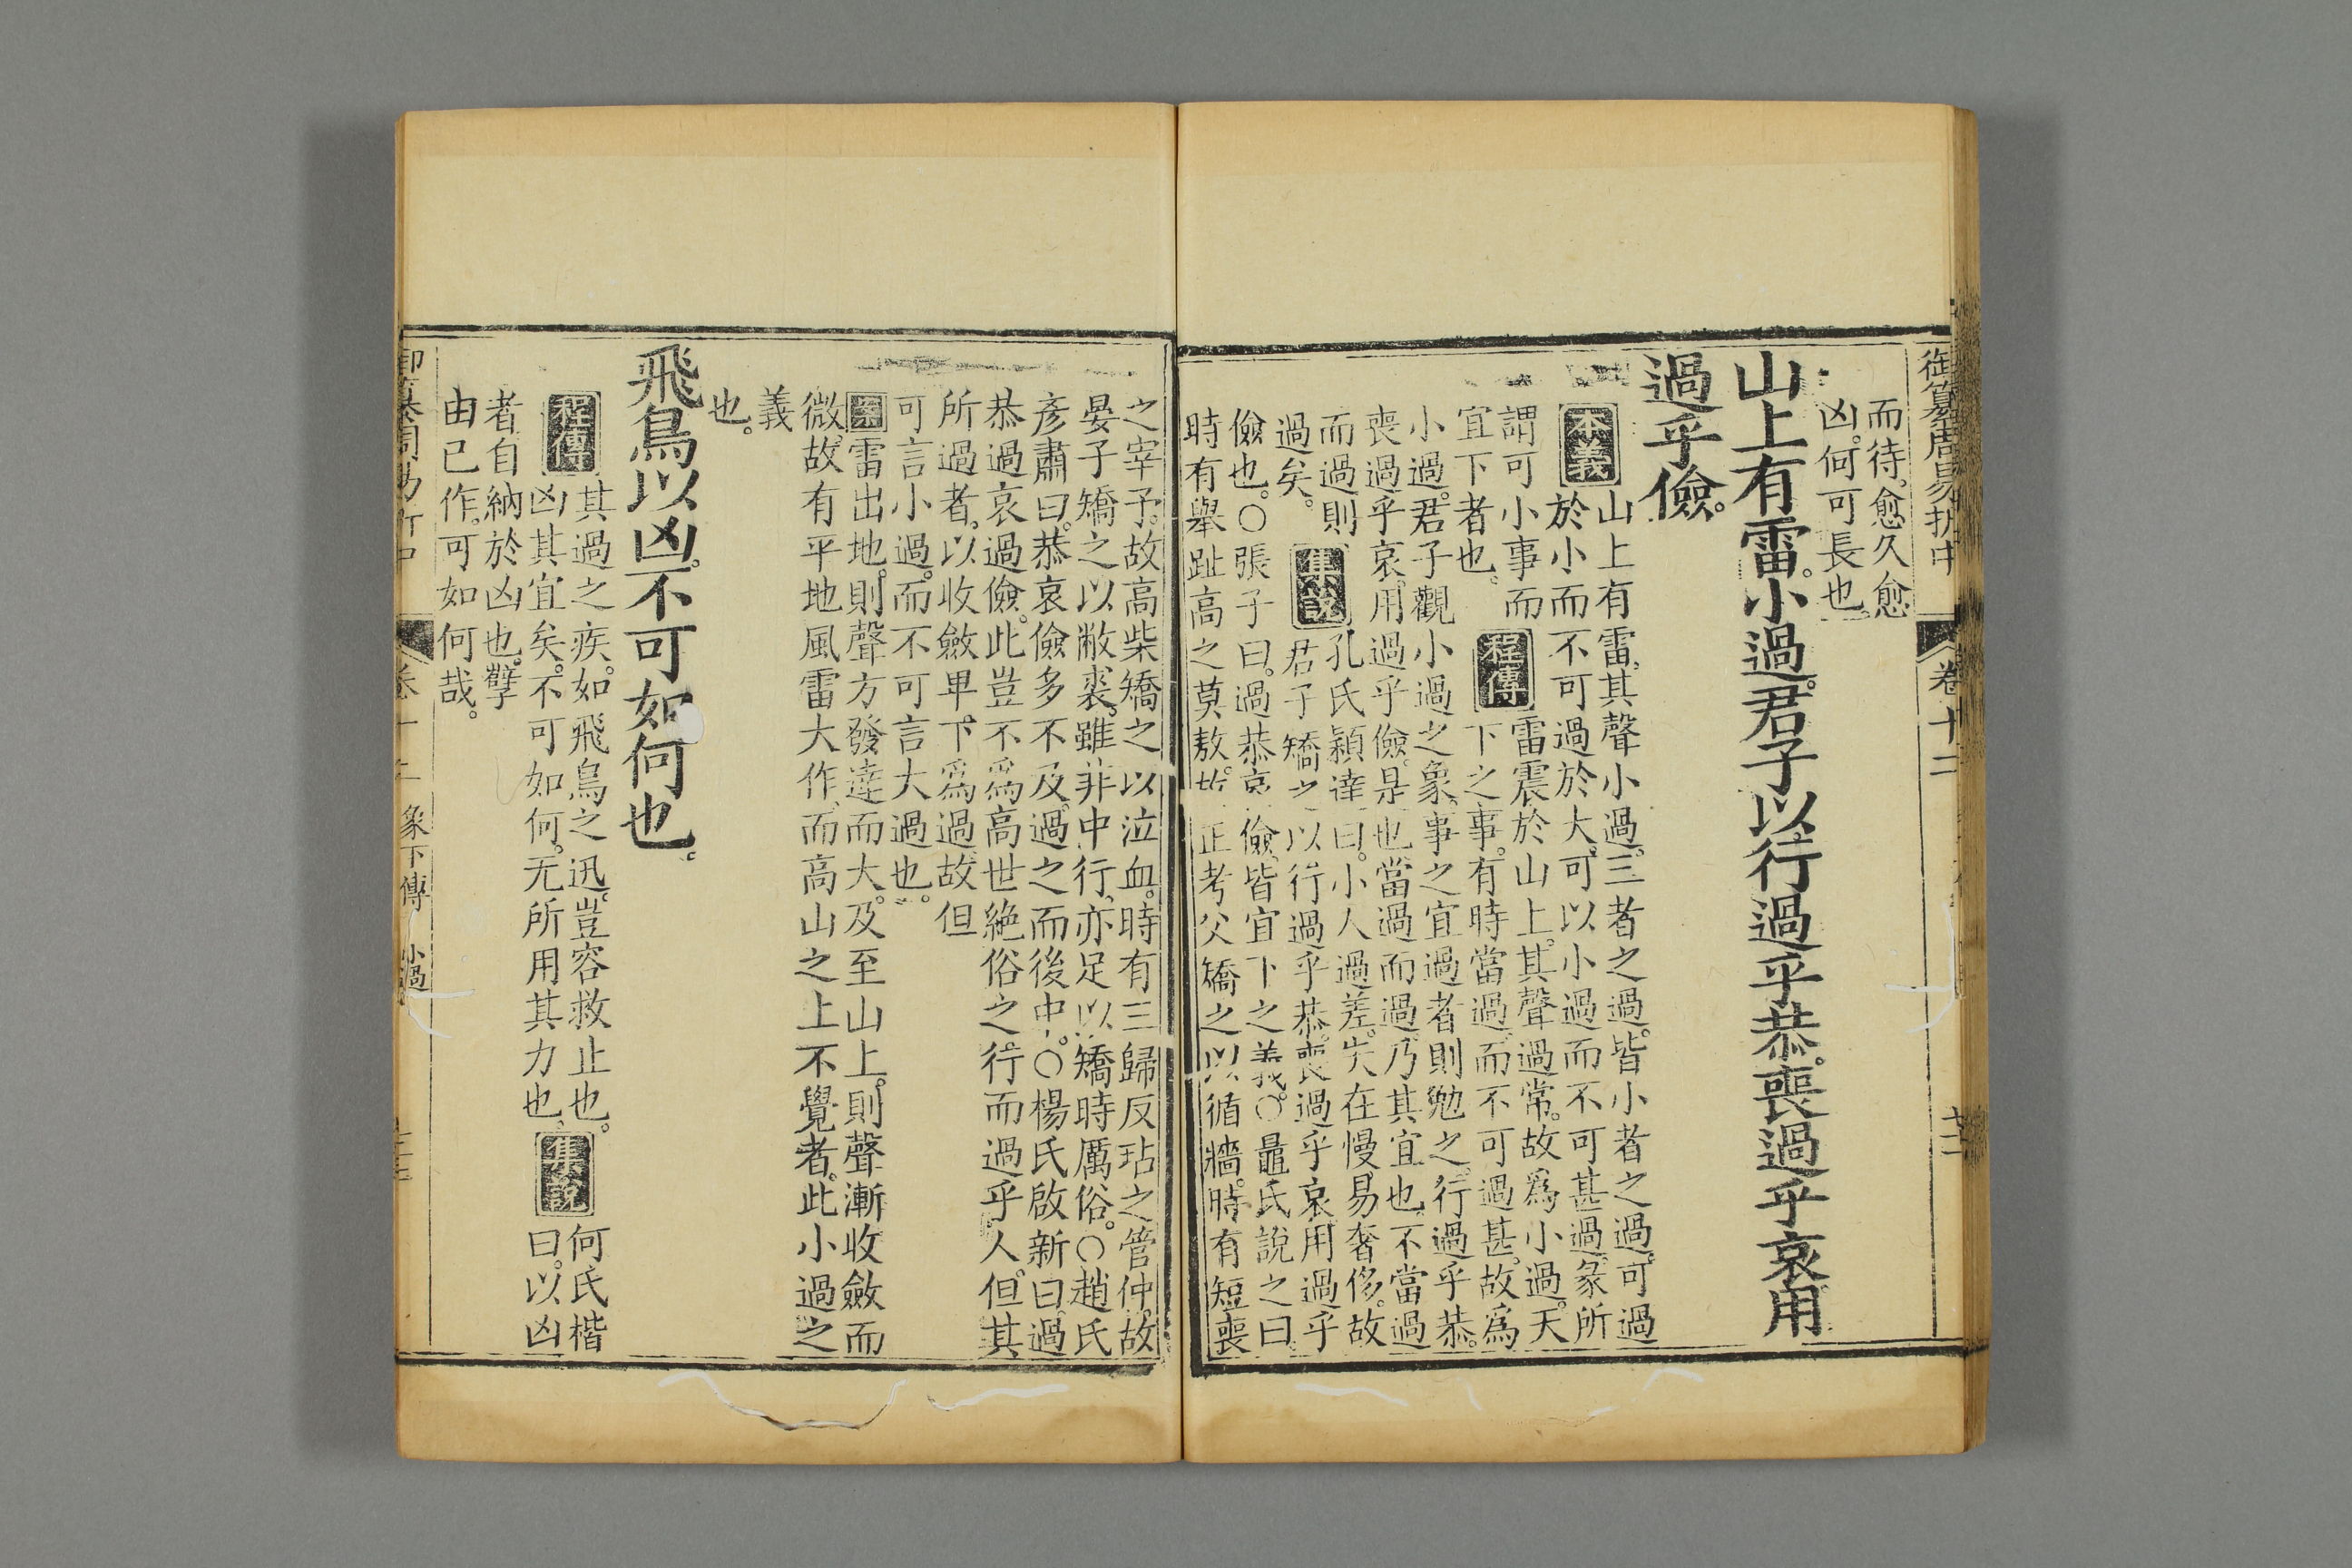 御纂周易折中
卷十二
而待愈久愈
凶何可長也
山上有雷小過君子以行過乎恭喪過乎哀用
過乎儉
本義
山上有雷其聲小過三者之過皆小者之過可過
於小而不可過於大可以小過而不可甚過彖所
謂可小事而
宜下者也
程傳
雷震於山上其聲過常故為小過天
下之事有時當過而不可過甚故為
小過君子觀小過之象事之宜過者則勉之行過乎恭
喪過乎哀用過乎儉是也當過而過乃其宜也不當過
而過則
過矣
集說
孔氏穎達曰小人過差失在慢易奢侈故
君子矯之以行過乎恭喪過乎哀用過乎
儉也○張子曰過恭哀儉皆宜下之義○鼂氏說之曰
時有舉趾高之莫敖故正考父矯之以循牆時有短喪
之宰予故高柴矯之以泣血時有三歸反玷之管仲故
晏子矯之以敝裘雖非中行亦足以矯時厲俗○趙氏
彥肅曰恭哀儉多不及過之而後中○楊氏啟新曰過
恭過哀過儉此豈不為高世絕俗之行而過乎人但其
所過者以收斂卑下為過故但
可言小過而不可言大過也
案雷出地則聲方發達而大及至山上則聲漸收斂而
微故有平地風雷大作而高山之上不覺者此小過之
義
也
飛鳥以凶不可如何也
程傳
其過之疾如飛鳥之迅豈容救止也
凶其宜矣不可如何无所用其力也
集說
何氏楷
曰以凶
者自納於凶也孽
由已作可如何哉
象下傳 小過